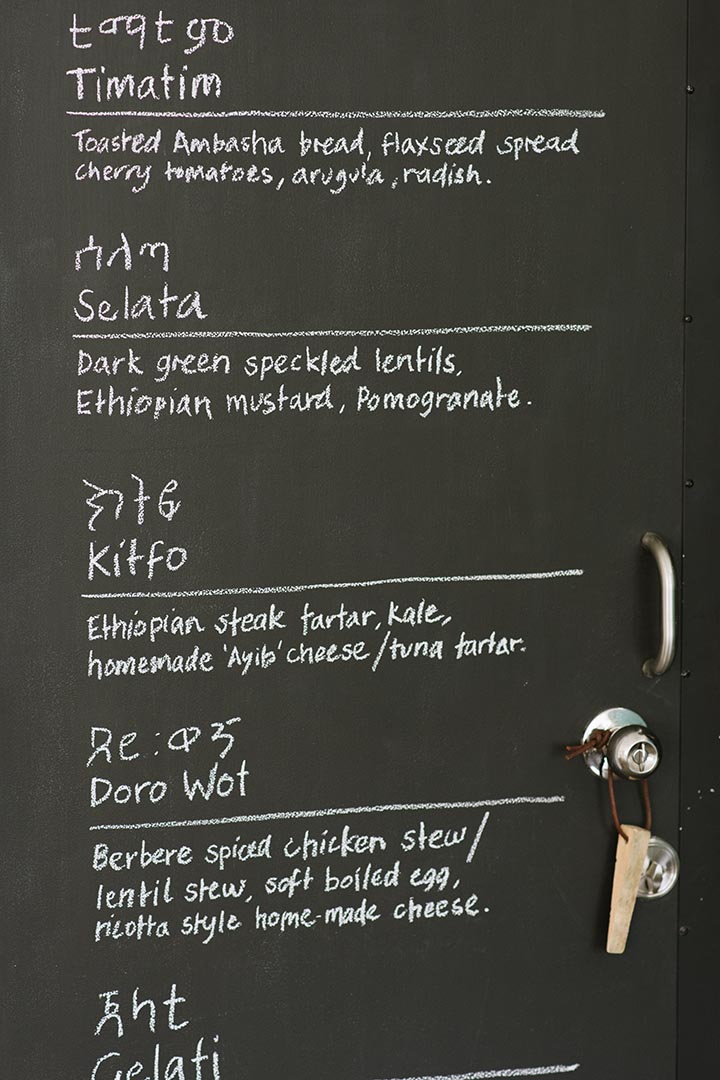 Timatim
Toasted Ambasha bread, flaxseed spread
cherry tomatoes, arugula, radish.
ሰላጣ
Selata
Dark green speckled lentils,
Ethiopian mustard, Pomogranate.
ክትፎ
Kitfo
Ethiopian steak tartar, kale,
homemade 'Ayib' cheese/tuna tartar.
Doro Wot
Berbere spiced chicken stew/
lentil stew, soft boiled egg,
ricotta style home-made cheese.
Gelati